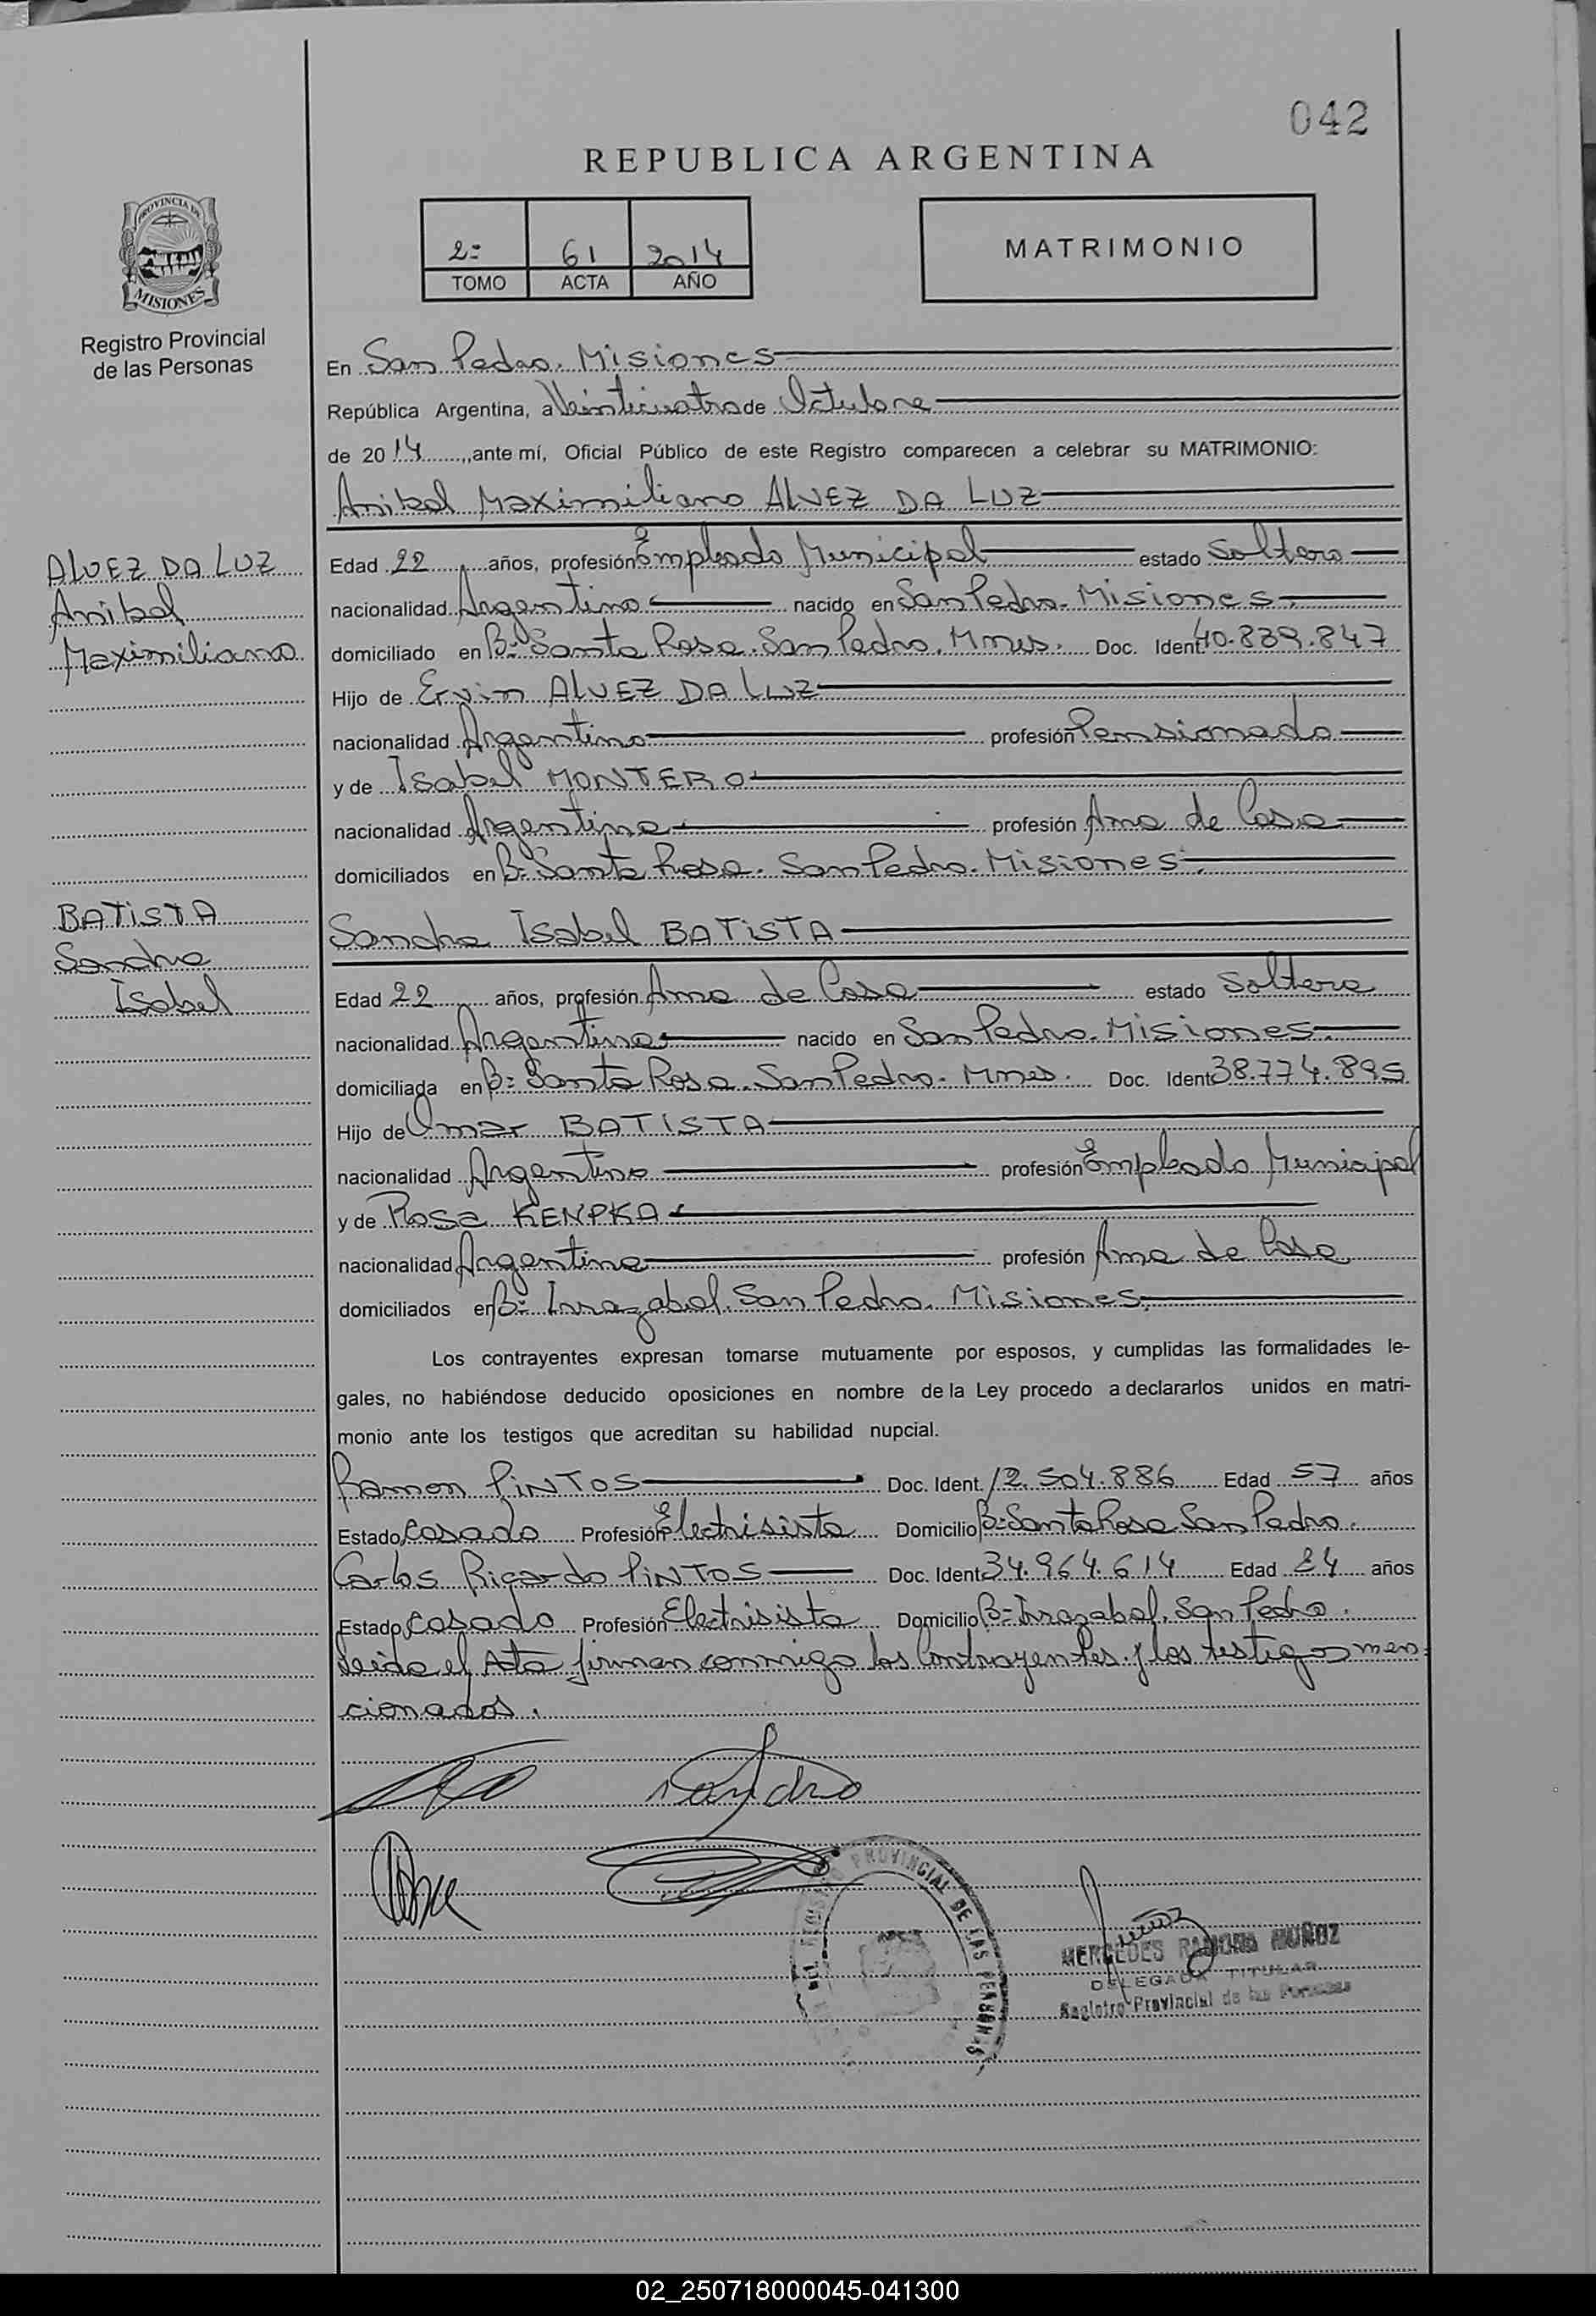 042
REPUBLICA ARGENTINA
PROVINCIA DE
MISIONES
Registro Provincial
de las Personas
2º 61 2014
TOMO ACTA AÑO
MATRIMONIO
En San Pedro. Misiones
República Argentina, a Veinticuatro de Octubre
de 2014, ante mí, Oficial Público de este Registro comparecen a celebrar su MATRIMONIO:
Anibal Maximiliano ALVEZ DA LUZ
ALVEZ DA LUZ
Anibal
Maximiliano
Edad 22 años, profesión Empleado Municipal estado Soltero
nacionalidad Argentino nacido en San Pedro. Misiones.
domiciliado en Bº Santa Rosa. San Pedro. Mnes. Doc. Ident 40.839.847
Hijo de Ervin ALVEZ DA LUZ
nacionalidad Argentino profesión Pensionado
y de Isabel MONTERO
nacionalidad Argentina profesión Ama de Casa
domiciliados en Bº Santa Rosa. San Pedro. Misiones.
BATISTA
Sandra
Isabel
Sandra Isabel BATISTA
Edad 22 años, profesión Ama de Casa estado Soltera
nacionalidad Argentina nacido en San Pedro. Misiones.
domiciliada en Bº Santa Rosa. San Pedro. Mnes. Doc. Ident 38.774.895
Hijo de Omar BATISTA
nacionalidad Argentino profesión Empleado Municipal
y de Rosa KENPKA
nacionalidad Argentina profesión Ama de Casa
domiciliados en Bº Irrazabal. San Pedro. Misiones.
Los contrayentes expresan tomarse mutuamente por esposos, y cumplidas las formalidades le-
gales, no habiéndose deducido oposiciones en nombre de la Ley procedo a declararlos unidos en matri-
monio ante los testigos que acreditan su habilidad nupcial.
Ramon PINTOS Doc. Ident. 12.504.886 Edad 57 años
Estado Casado Profesión Electrisista Domicilio Bº Santa Rosa San Pedro.
Carlos Ricardo PINTOS Doc. Ident 34.964.614 Edad 24 años
Estado Casado Profesión Electrisista Domicilio Bº Irrazabal. San Pedro.
Leida el Acta firman conmigo los Contrayentes y los testigos men-
cionados.
Sandra
PROVINCIAL DE LAS PERSONAS
MERCEDES RAMONA MUÑOZ
DELEGADA TITULAR
Registro Provincial de las Personas
02_250718000045-041300